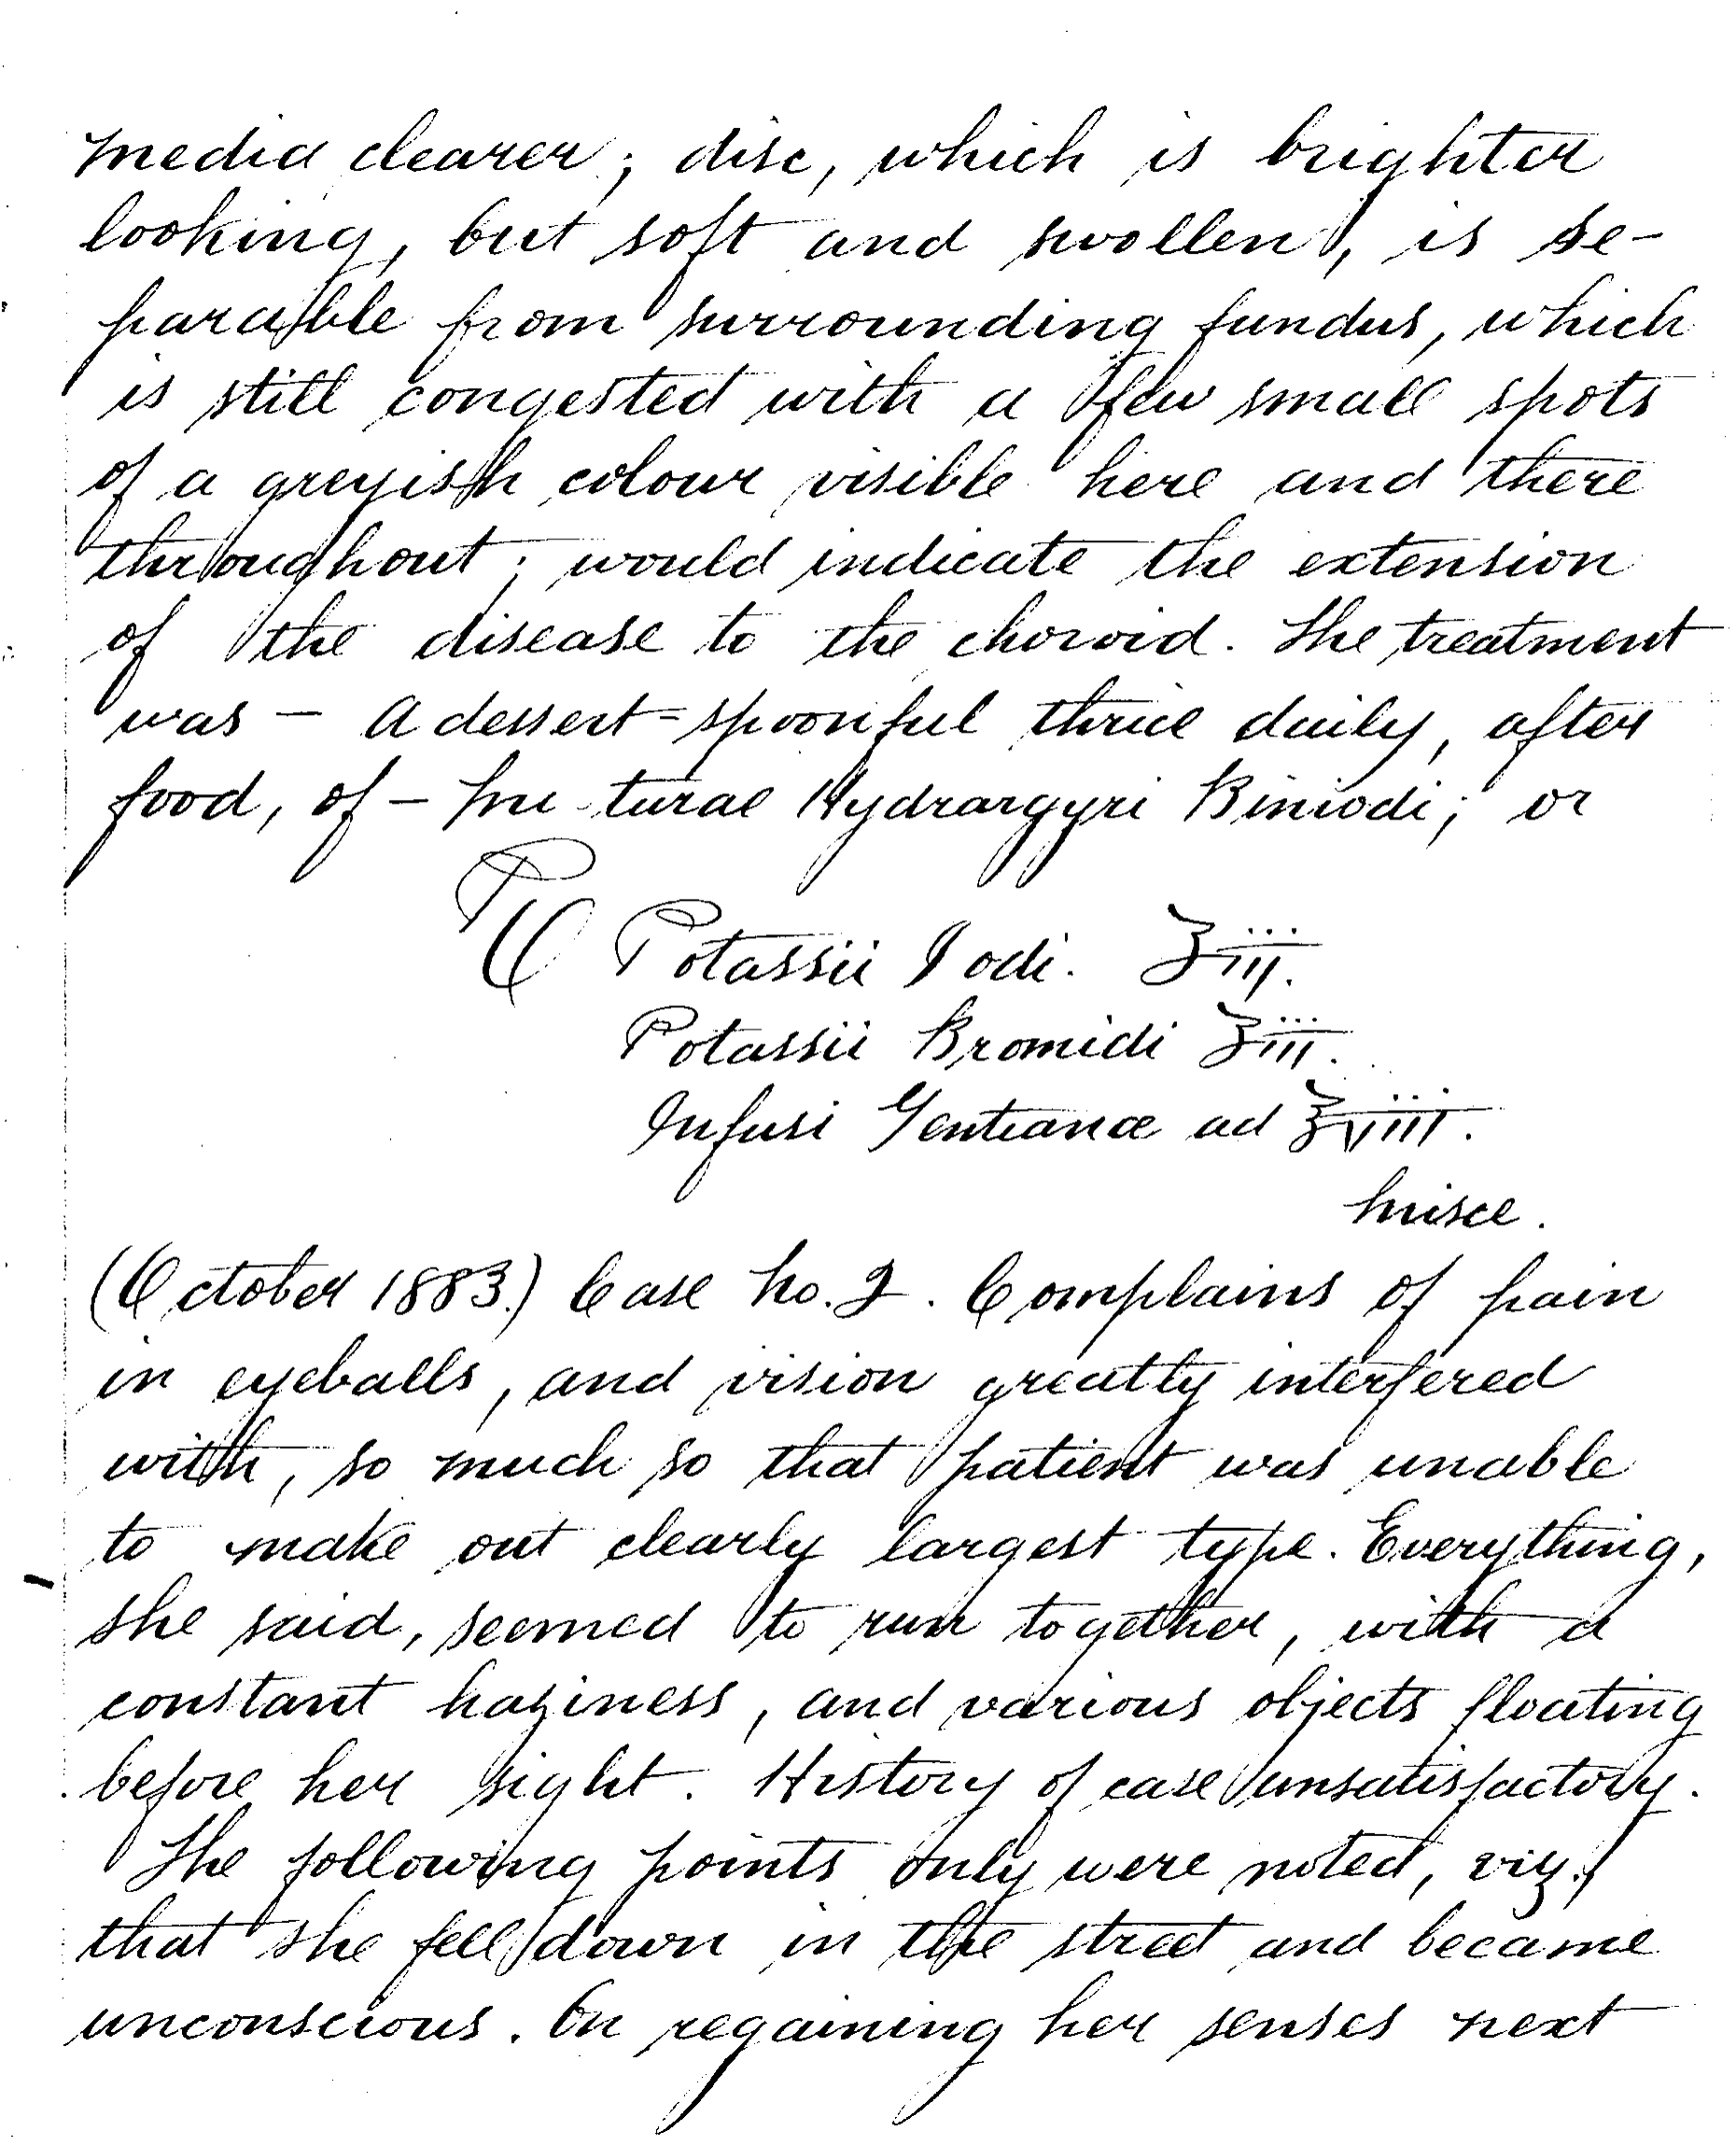 media clearer; disc, which is brighter
looking, but soft and swollen, is se-
parable from surrounding fundus, which
is still congested with a few small spots
of a greyish colour visible here and there
throughout; would indicate the extension
of the disease to the choroid. The treatment
was — A dessert-spoonful thrice daily, after
food, of — Mis-turae Hydrargyri Biniodi; or
℞ Potassii Iodi. ʒiii.
Potassii Bromidi ʒiii.
Infusi Gentianæ ad ℥viii.
Misce.
(October 1883.) Case No. 2. Complains of pain
in eyeballs, and vision greatly interfered
with, so much so that patient was unable
to make out clearly largest type. Everything,
she said, seemed to run together, with a
constant haziness, and various objects floating
before her sight. History of case unsatisfactory.
The following points only were noted, viz.,
that she fell down in the street and became
unconscious. On regaining her senses next